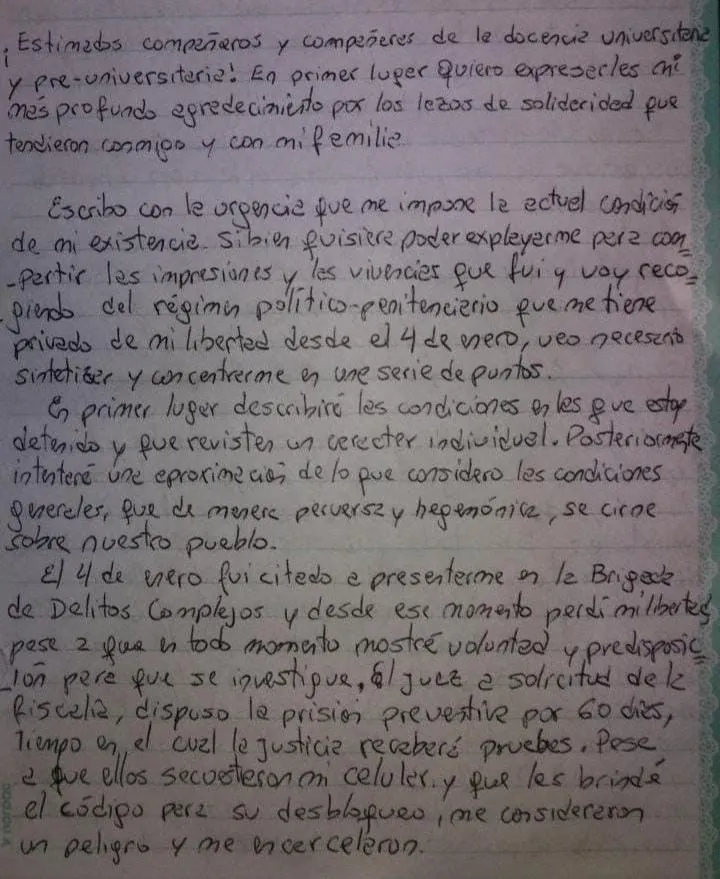 ¡Estimados compañeros y compañeres de la docencia universitaria
y pre-universitaria! En primer lugar Quiero expresarles mi
mas profundo agradecimiento por los lazos de solidaridad que
tendieron conmigo y con mi familia
Escribo con la urgencia que me impone la actual condición
de mi existencia. Si bien quisiera poder explayarme para com
-partir las impresiones y las vivencias que fui y voy reco-
giendo del régimen político-penitenciario que me tiene
privado de mi libertad desde el 4 de enero, veo necesario
sintetizar y concentrarme en una serie de puntos.
En primer lugar describiré las condiciones en las que estoy
detenido y que revisten un caracter individual. Posteriormente
intentaré una aproximación de lo que considero las condiciones
generales, que de manera perversa y hegemónica, se cirne
sobre nuestro pueblo.
El 4 de enero fui citado a presentarme en la Brigada
de Delitos Complejos y desde ese momento perdí mi libertad
pese a que en todo momento mostré voluntad y predisposic-
ión para que se investigue, el juez a solicitud de la
fiscalía, dispuso la prisión preventiva por 60 días,
Tiempo en el cual la justicia recabará pruebas. Pese
a que ellos secuestraron mi celular, y que les brindé
el código para su desbloqueo, me consideraron
un peligro y me encarcelaron.